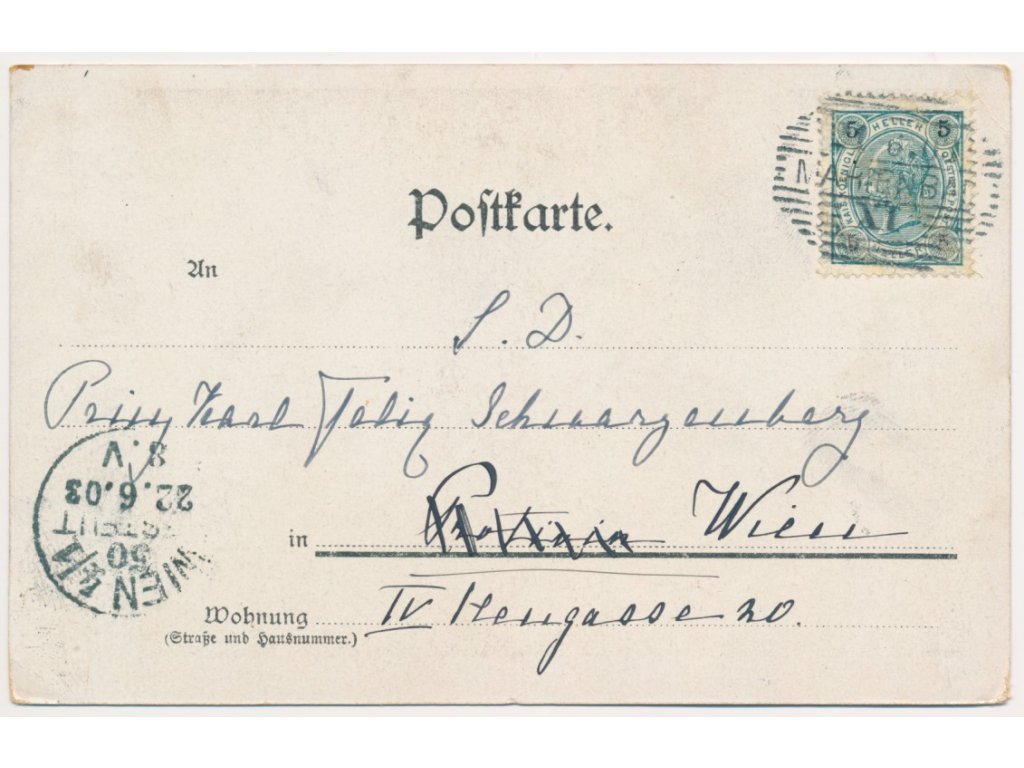 5 HELLER 5
KAIS. KOENIGL. OESTERR. POST
5 HELLER 5
Postkarte.
An
S. D.
Prinz Karl Felix Schwarzenberg
in Wien
IV Heugasse 20.
Wohnung
(Straße und Hausnummer.)
WIEN 4/1
50
BESTELLT
22.6.03
8.V